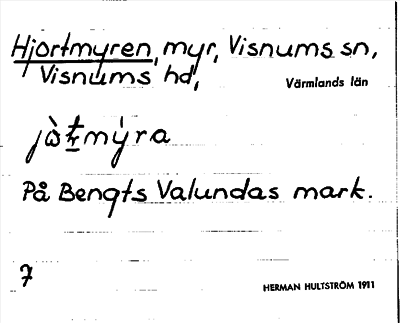 Hjortmyren, myr, Visnums sn,
Visnums hd,
Värmlands län
På Bengts Valundas mark.
7
HERMAN HULTSTRÖM 1911